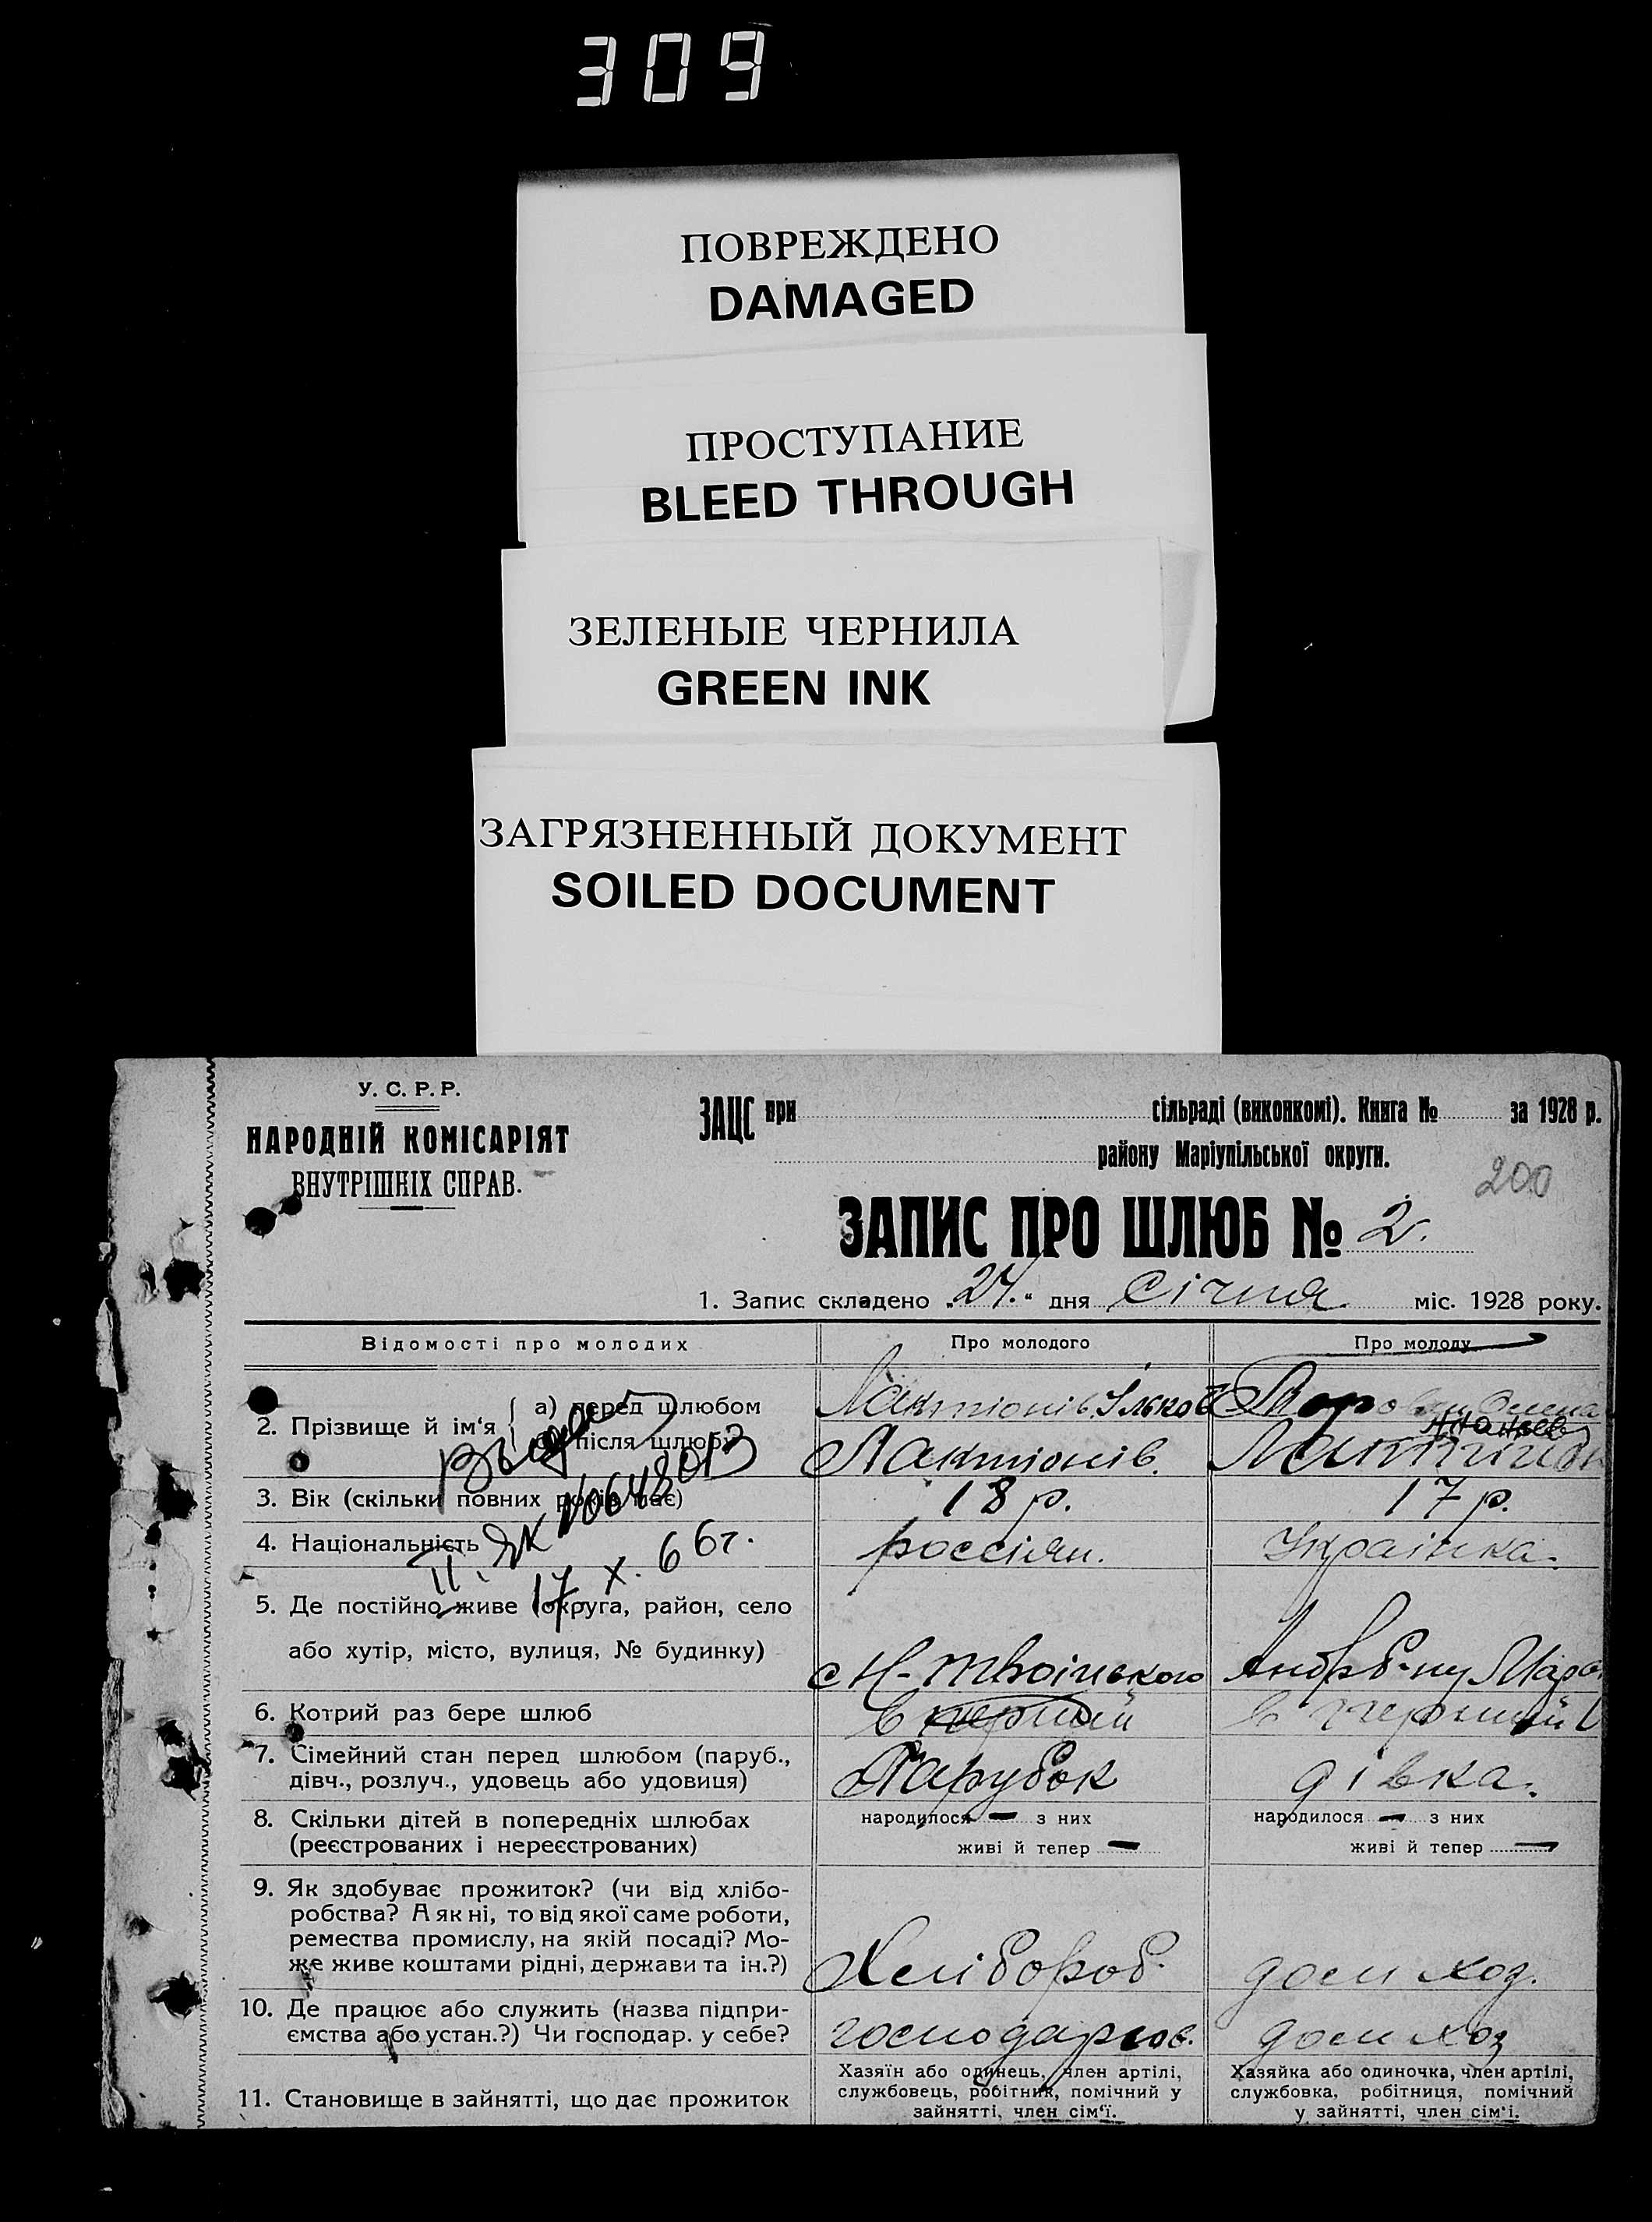 309
ПОВРЕЖДЕНО
DAMAGED
ПРОСТУПАНИЕ
BLEED THROUGH
ЗЕЛЕНЫЕ ЧЕРНИЛА
GREEN INK
ЗАГРЯЗНЕННЫЙ ДОКУМЕНТ
SOILED DOCUMENT
У. С. Р. Р.
НАРОДНІЙ КОМІСАРІЯТ
ВНУТРІШНІХ СПРАВ.
ЗАЦС при сільраді (виконкомі). Книга № за 1928 р.
району Маріупільської округи.
200
ЗАПИС ПРО ШЛЮБ № 2.
1. Запис складено „27.“ дня Січня міс. 1928 року.
Відомості про молодих Про молодого Про молоду
2. Прізвище й ім‘я { а) перед шлюбом Лактіонів Ілько
після шлюбу Лактіонів.
3. Вік (скільки повних років має) 18 р. 17 р.
4. Національність россіян. Українка.
II. ЯК №0648013
17 X. 66г.
5. Де постійно живе (округа, район, село
або хутір, місто, вулиця, № будинку)
6. Котрий раз бере шлюб в перший в перший
7. Сімейний стан перед шлюбом (паруб., дівч., розлуч., удовець або удовиця) Парубок дівка.
8. Скільки дітей в попередніх шлюбах народилося — з них народилося — з них
(реєстрованих і нереєстрованих) живі й тепер — живі й тепер —
9. Як здобуває прожиток? (чи від хлібо-
робства? А як ні, то від якої саме роботи,
ремества промислу, на якій посаді? Мо-
же живе коштами рідні, держави та ін.?) Хлібороб. дом ход.
10. Де працює або служить (назва підпри-
ємства або устан.?) Чи господар. у себе? господарюв. дом ход
11. Становище в зайнятті, що дає прожиток
Хазяїн або одинець, член артілі,
службовець, робітник, помічний у
зайнятті, член сім‘ї.
Хазяйка або одиночка, член артілі,
службовка, робітниця, помічний
у зайнятті, член сім‘ї.